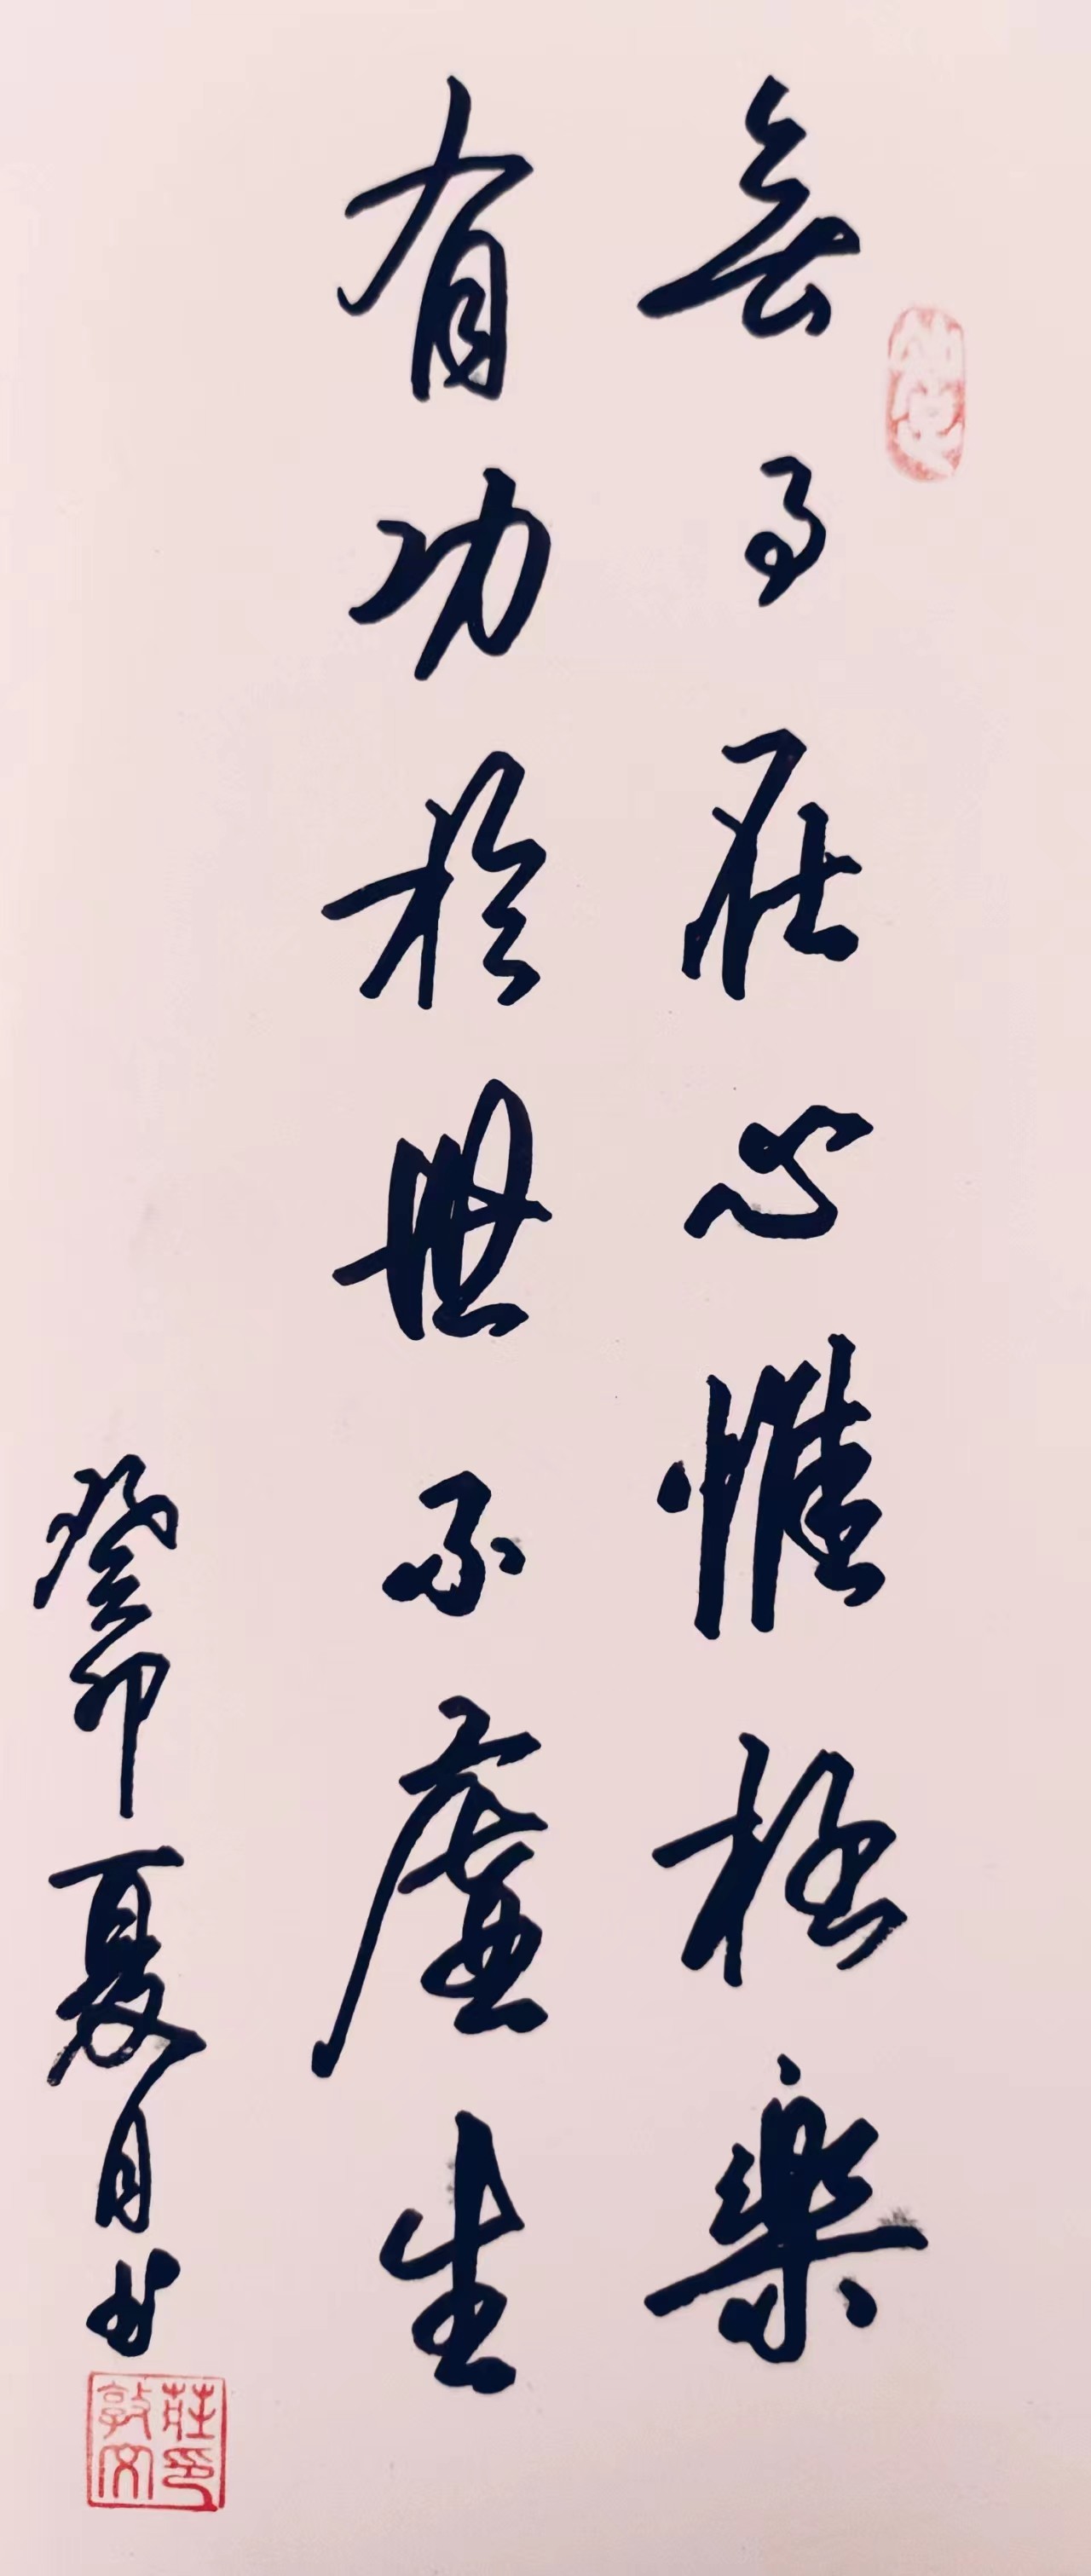 無事在心惟極樂
有功於世不虛生
癸卯夏月书
莊敦文印